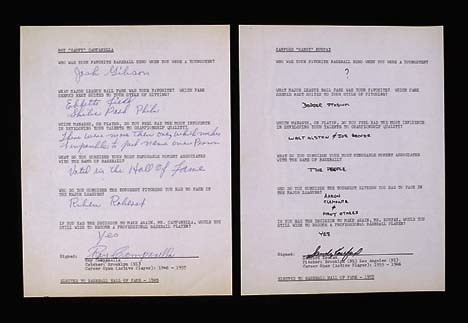 ROY "CAMPY" CAMPANELLA
WHO WAS YOUR FAVORITE BASEBALL HERO WHEN YOU WERE A YOUNGSTER?
Josh Gibson
WHAT MAJOR LEAGUE BALL PARK WAS YOUR FAVORITE? WHICH PARK
SEEMED BEST SUITED TO YOUR STYLE OF HITTING?
Ebbetts Field
Shibe Park Phila
WHICH MANAGER, OR PLAYER, DO YOU FEEL HAD THE MOST INFLUENCE
IN DEVELOPING YOUR TALENTS TO CHAMPIONSHIP QUALITY?
There were more than one, which makes
impossible to just name one
WHAT DO YOU CONSIDER YOUR MOST MEMORABLE MOMENT ASSOCIATED
WITH THE GAME OF BASEBALL?
Voted in the Hall of Fame
WHO DO YOU CONSIDER THE TOUGHEST PITCHERS YOU HAD TO FACE IN
THE MAJOR LEAGUES?
Robin Roberts
IF YOU HAD THE DECISION TO MAKE AGAIN, MR. CAMPANELLA, WOULD YOU
STILL WISH TO BECOME A PROFESSIONAL PLAYER?
Yes
Signed: Roy Campanella
Roy Campanella
Catcher: Brooklyn (NL)
Career Span (Active Player): 1948 - 1957
ELECTED TO BASEBALL HALL OF FAME - 1969
SANFORD "SANDY" KOUFAX
WHO WAS YOUR FAVORITE BASEBALL HERO WHEN YOU WERE A YOUNGSTER?
?
WHAT MAJOR LEAGUE BALL PARK WAS YOUR FAVORITE? WHICH PARK
SEEMED BEST SUITED TO YOUR STYLE OF PITCHING?
DODGER STADIUM
WHICH MANAGER, OR PLAYER, DO YOU FEEL HAD THE MOST INFLUENCE
IN DEVELOPING YOUR TALENTS TO CHAMPIONSHIP QUALITY?
WALT ALSTON & JOE BECKER
WHAT DO YOU CONSIDER YOUR MOST MEMORABLE MOMENT ASSOCIATED
WITH THE GAME OF BASEBALL?
THE PEOPLE
WHO DO YOU CONSIDER THE TOUGHEST HITTERS YOU HAD TO FACE IN
THE MAJOR LEAGUES?
AARON
CLEMENTE
&
MANY OTHERS
IF YOU HAD THE DECISION TO MAKE AGAIN, MR. KOUFAX, WOULD YOU
STILL WISH TO BECOME A PROFESSIONAL PLAYER?
YES
Signed: Sandy Koufax
Sanford Koufax
Pitcher: Brooklyn (NL) Los Angeles (NL)
Career Span (Active Player): 1955 - 1966
ELECTED TO BASEBALL HALL OF FAME - 1972